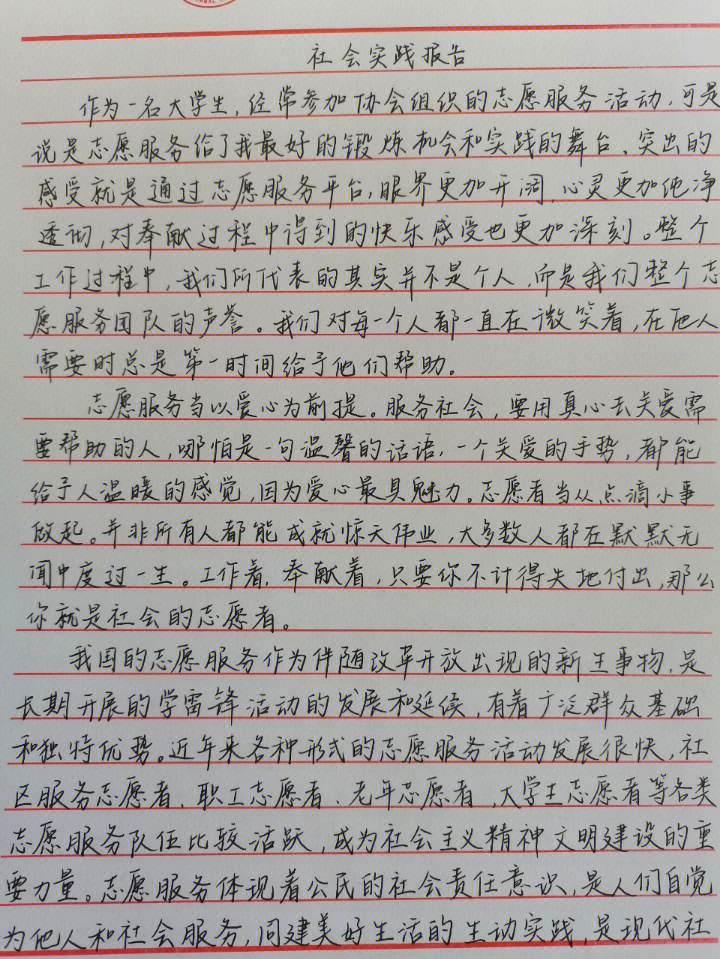 社会实践报告
作为一名大学生，经常参加协会组织的志愿服务活动，可是
说是志愿服务给了我最好的锻炼机会和实践的舞台、突出的
感受就是通过志愿服务平台，眼界更加开阔，心灵更加纯净
透彻，对奉献过程中得到的快乐感受也更加深刻。整个
工作过程中，我们所代表的其实并不是个人，而是我们整个志
愿服务团队的声誉。我们对每一个人都一直在微笑着，在他人
需要时总是第一时间给予他们帮助。
志愿服务当以爱心为前提。服务社会，要用真心去关爱需
要帮助的人，哪怕是一句温馨的话语，一个关爱的手势，都能
给予人温暖的感觉，因为爱心最具魅力。志愿者当从点滴小事
做起。并非所有人都能成就惊天伟业，大多数人都在默默无
闻中度过一生。工作着，奉献着，只要你不计得失地付出，那么
你就是社会的志愿者。
我国的志愿服务作为伴随改革开放出现的新生事物，是
长期开展的学雷锋活动的发展和延续，有着广泛群众基础
和独特优势。近年来各种形式的志愿服务活动发展很快，社
区服务志愿者、职工志愿者、老年志愿者，大学生志愿者等各类
志愿服务队伍比较活跃，成为社会主义精神文明建设的重
要力量。志愿服务体现着公民的社会责任意识，是人们自觉
为他人和社会服务，同建美好生活的生动实践，是现代社